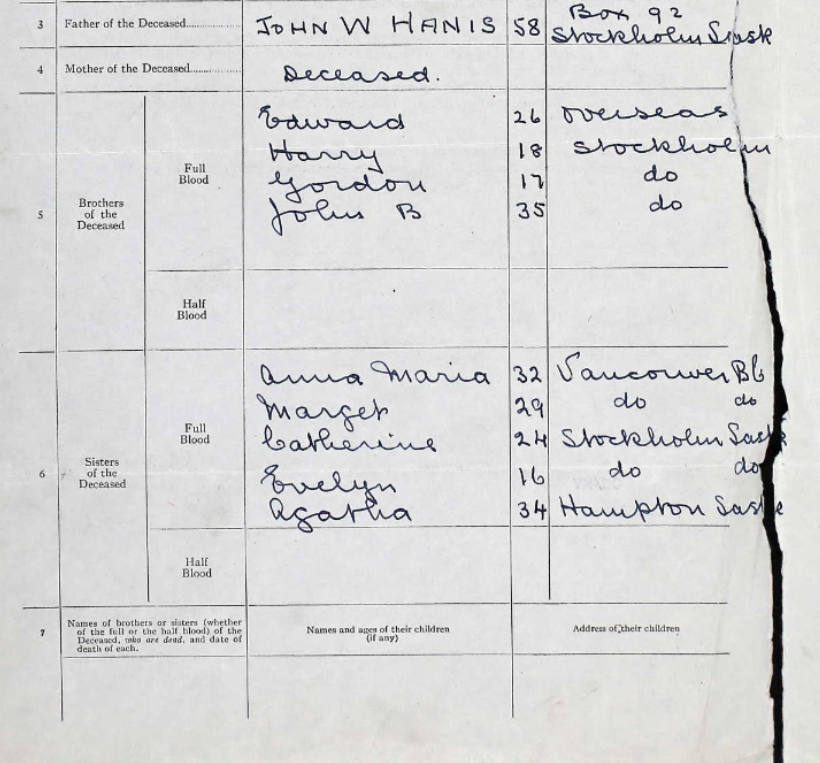 3 Father of the Deceased............ JOHN W HANIS 58 Box 92
Stockholm Sask
4 Mother of the Deceased............ Deceased.
5 Brothers of the Deceased
Full Blood
Edward 26 overseas
Harry 18 Stockholm
Gordon 17 do
John B 35 do
Half Blood
6 Sisters of the Deceased
Full Blood
Anna Maria 32 Vancouver BC
Marget 29 do do
Catherine 24 Stockholm Sask
Evelyn 16 do do
Agatha 34 Hampton Sask
Half Blood
7 Names of brothers or sisters (whether
of the full or the half blood) of the
Deceased, who are dead, and date of
death of each.
Names and ages of their children
(if any)
Address of their children